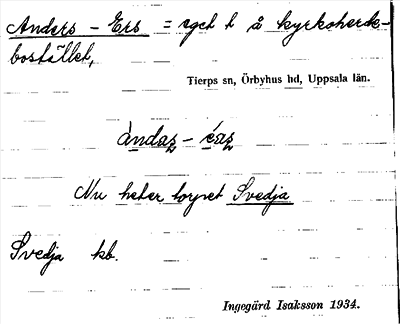 Anders - Ers = eget t å kyrkoherde-
bostället,
Tierps sn, Örbyhus hd, Uppsala län.
ándaʐ - éaʐ
Nu heter torpet Svedja
Svedja kb.
Ingegärd Isaksson 1934.